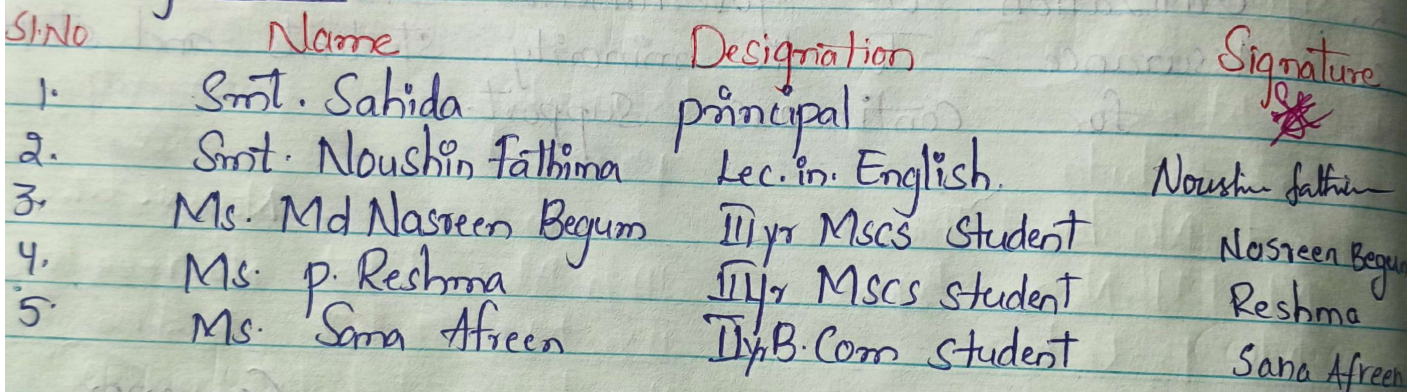 Sl.No Name Designation Signature
1. Smt. Sahida principal
2. Smt. Noushin fathima Lec. in. English. Noushin fathima
3. Ms. Md Nasreen Begum III yr MSCS Student Nasreen Begum
4. Ms. P. Reshma III yr MSCS Student Reshma
5. Ms. Sana Afreen II yr B.Com Student Sana Afreen